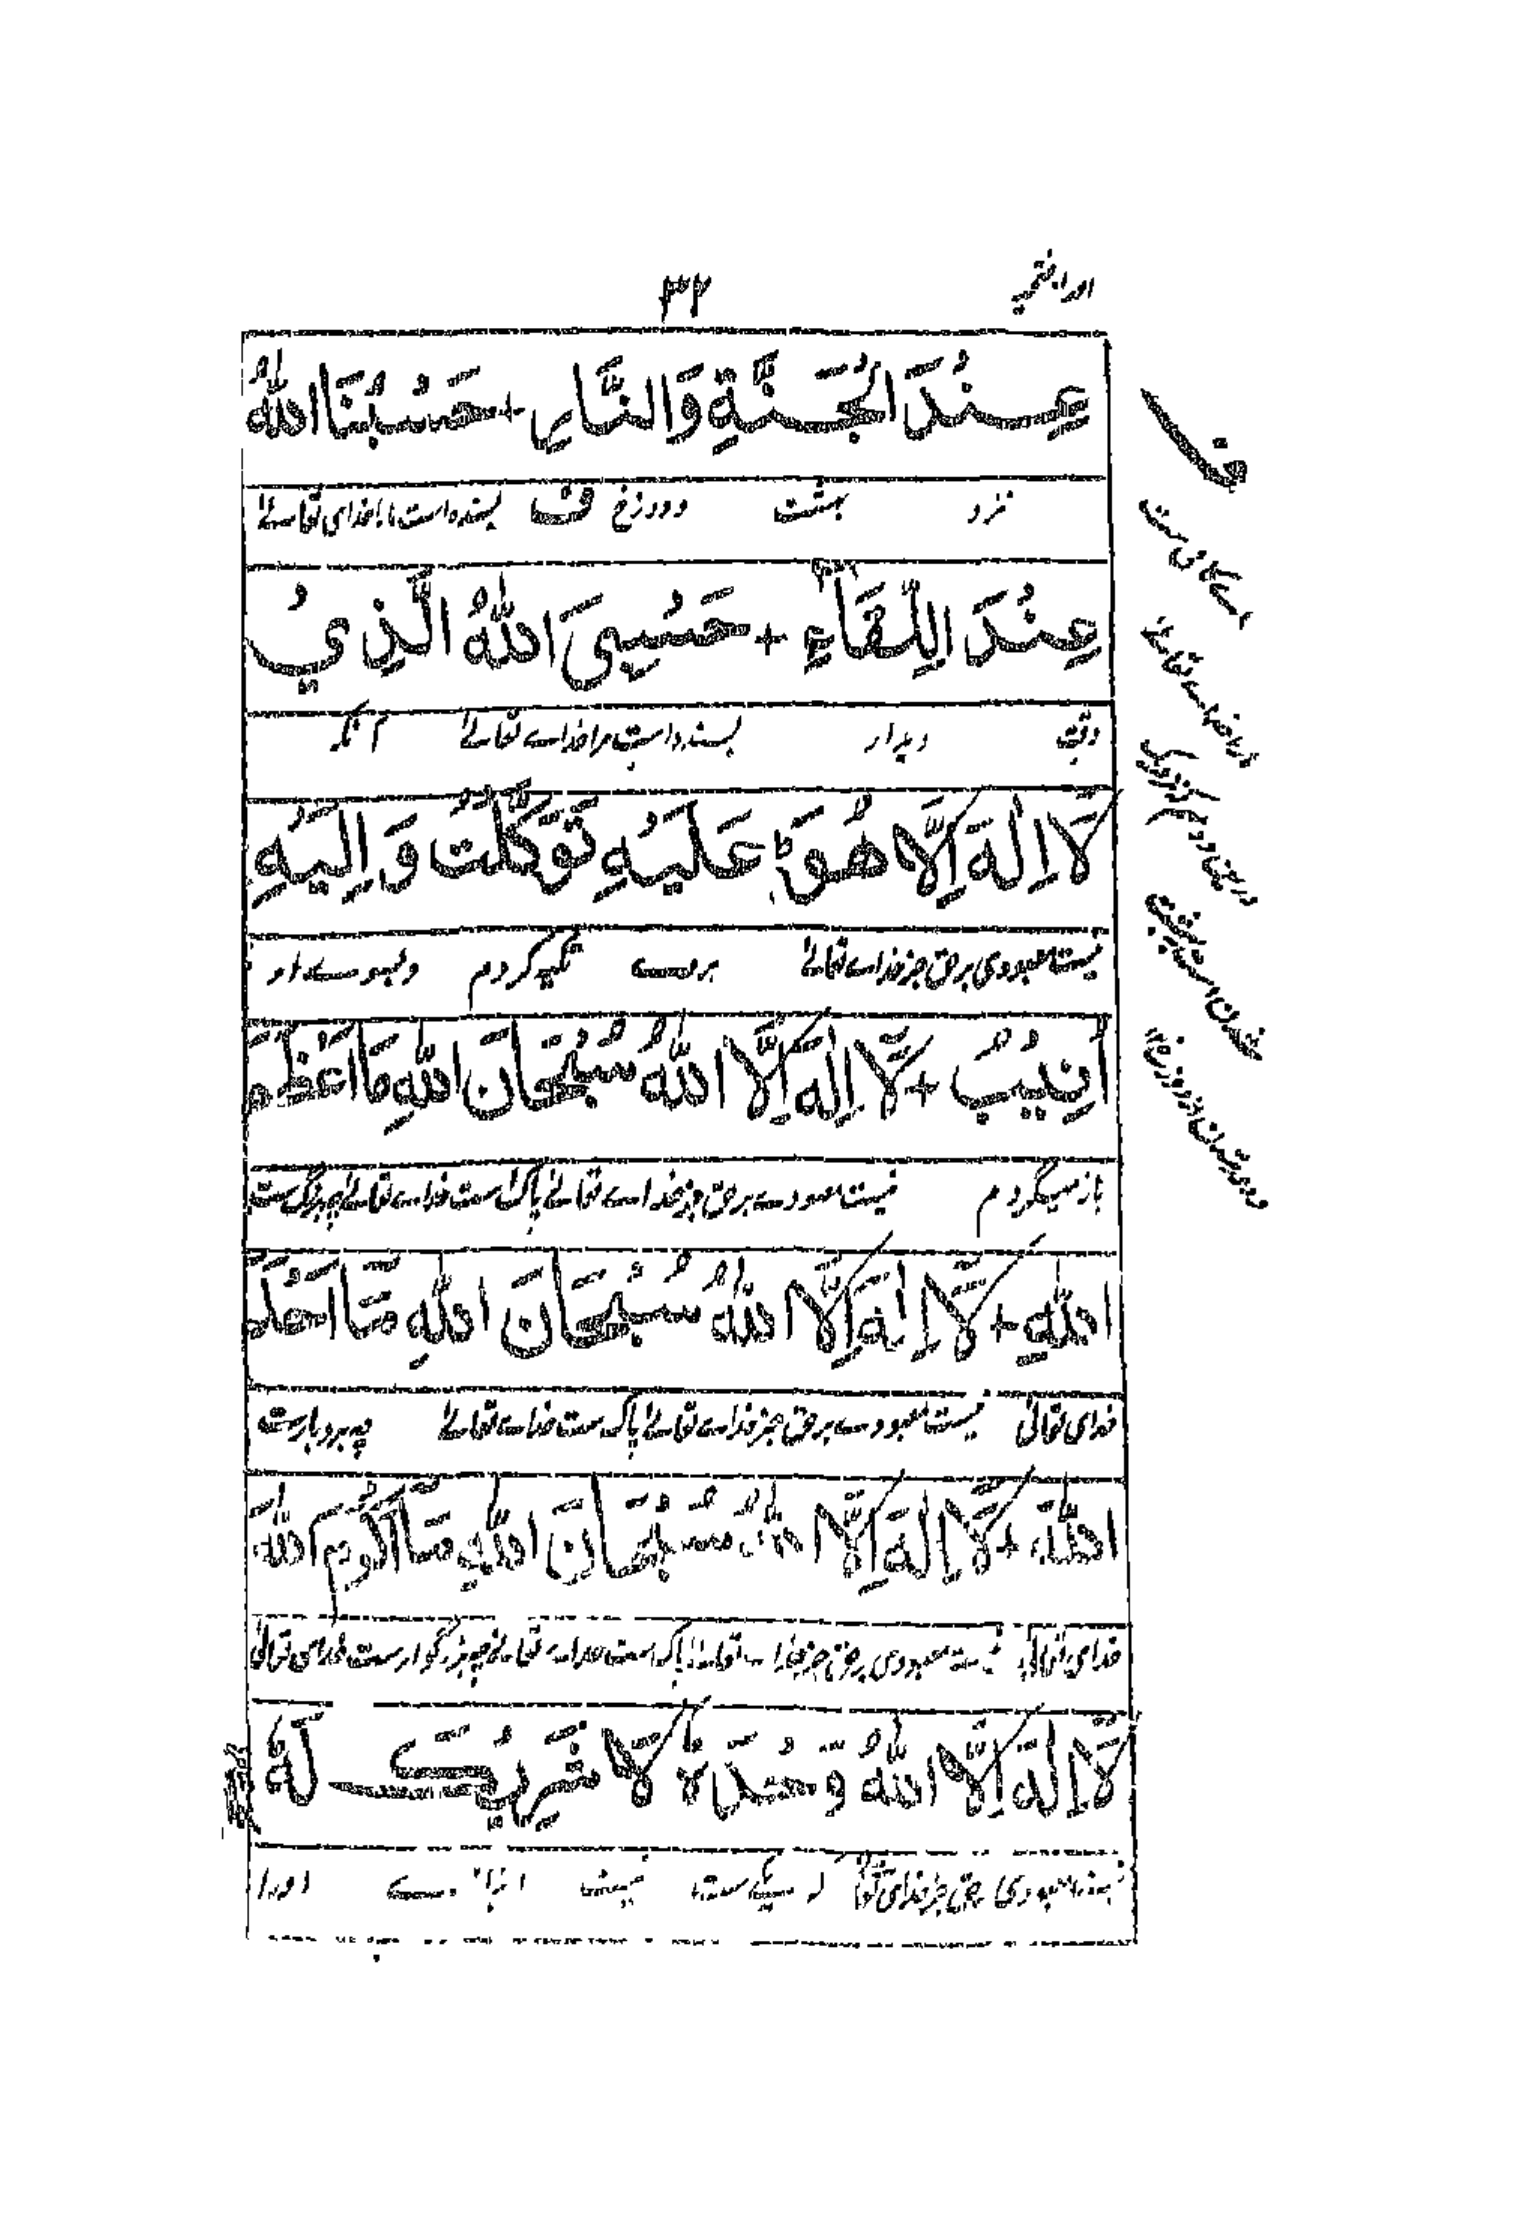 اوراد فتحیہ
۳۲
عِنْدَ الْجَنَّةِ وَالنَّارِ + حَسْبُنَا اللّٰهُ
نزد بہشت و دوزخ ف بسندہ است مارا خدای تعالےٰ
عِنْدَ اللِّقَآءِ + حَسْبِیَ اللّٰهُ الَّذِیْ
وقت دیدار بسندہ است مرا خداے تعالےٰ آنکہ
لَا اِلٰهَ اِلَّا هُوَ ؕ عَلَیْهِ تَوَكَّلْتُ وَ اِلَیْهِ
نیست معبودی برحق جز خداے تعالےٰ بروے تکیہ کردم و بسوے او
اُنِیْبُ + لَآ اِلٰهَ اِلَّا اللّٰهُ سُبْحَانَ اللّٰهِ مَا اَعْظَمَ
باز میگردم نیست معبودے برحق جز خداے تعالےٰ پاک است خداے تعالےٰ چہ بزرگ ست
اللّٰهِ + لَآ اِلٰهَ اِلَّا اللّٰهُ سُبْحَانَ اللّٰهِ مَآ اَحْلَمَ
خدای تعالیٰ نیست معبودے برحق جز خداے تعالےٰ پاک ست خداے تعالےٰ چہ بردبارست
اللّٰهَ + لَآ اِلٰهَ اِلَّا اللّٰهُ سُبْحَانَ اللّٰهِ مَآ اَكْرَمَ اللّٰهَ
خدای تعالیٰ نیست معبودی برحق جز خداے تعالےٰ پاک ست خداے تعالےٰ چہ بزرگوارست خدای تعالیٰ
لَآ اِلٰهَ اِلَّا اللّٰهُ وَحْدَهٗ لَا شَرِیْكَ لَهٗ
نیست معبودی برحق جز خدای تعالیٰ کہ یکے ست نیست انبازے اورا
ف